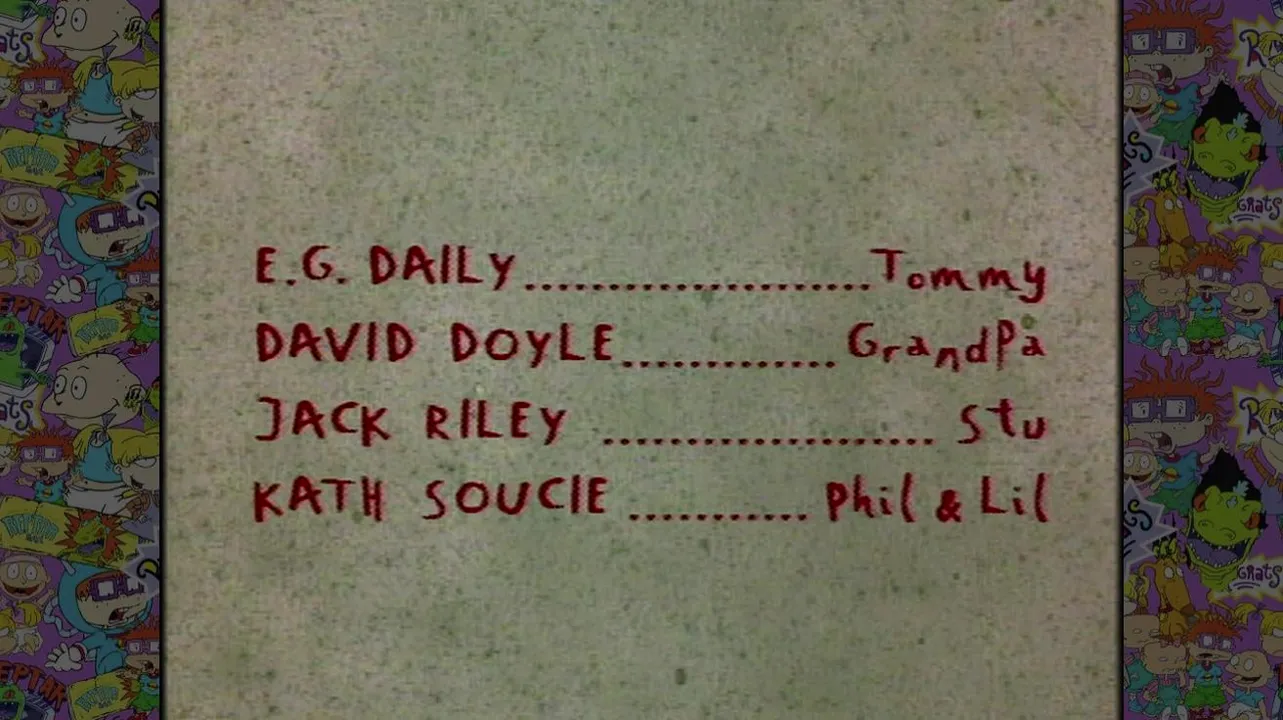 E.G. DAILY.....................Tommy
DAVID DOYLE............. GrandPa
JACK RILEY .................... Stu
KATH SOUCIE ........... Phil & Lil